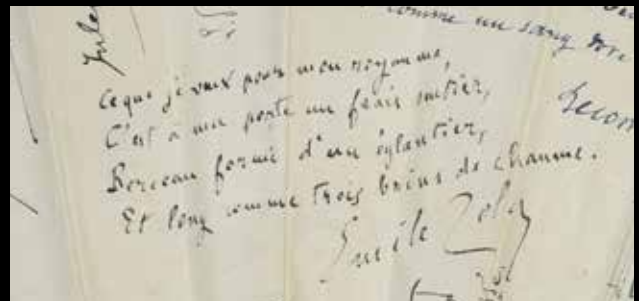 Jules
comme un sang
Ce que je veux pour mon royaume,
C'est à ma porte un frais sentier,
Berceau formé d'un églantier,
Et long comme trois brins de chaume.
Emile Zola
Lecon